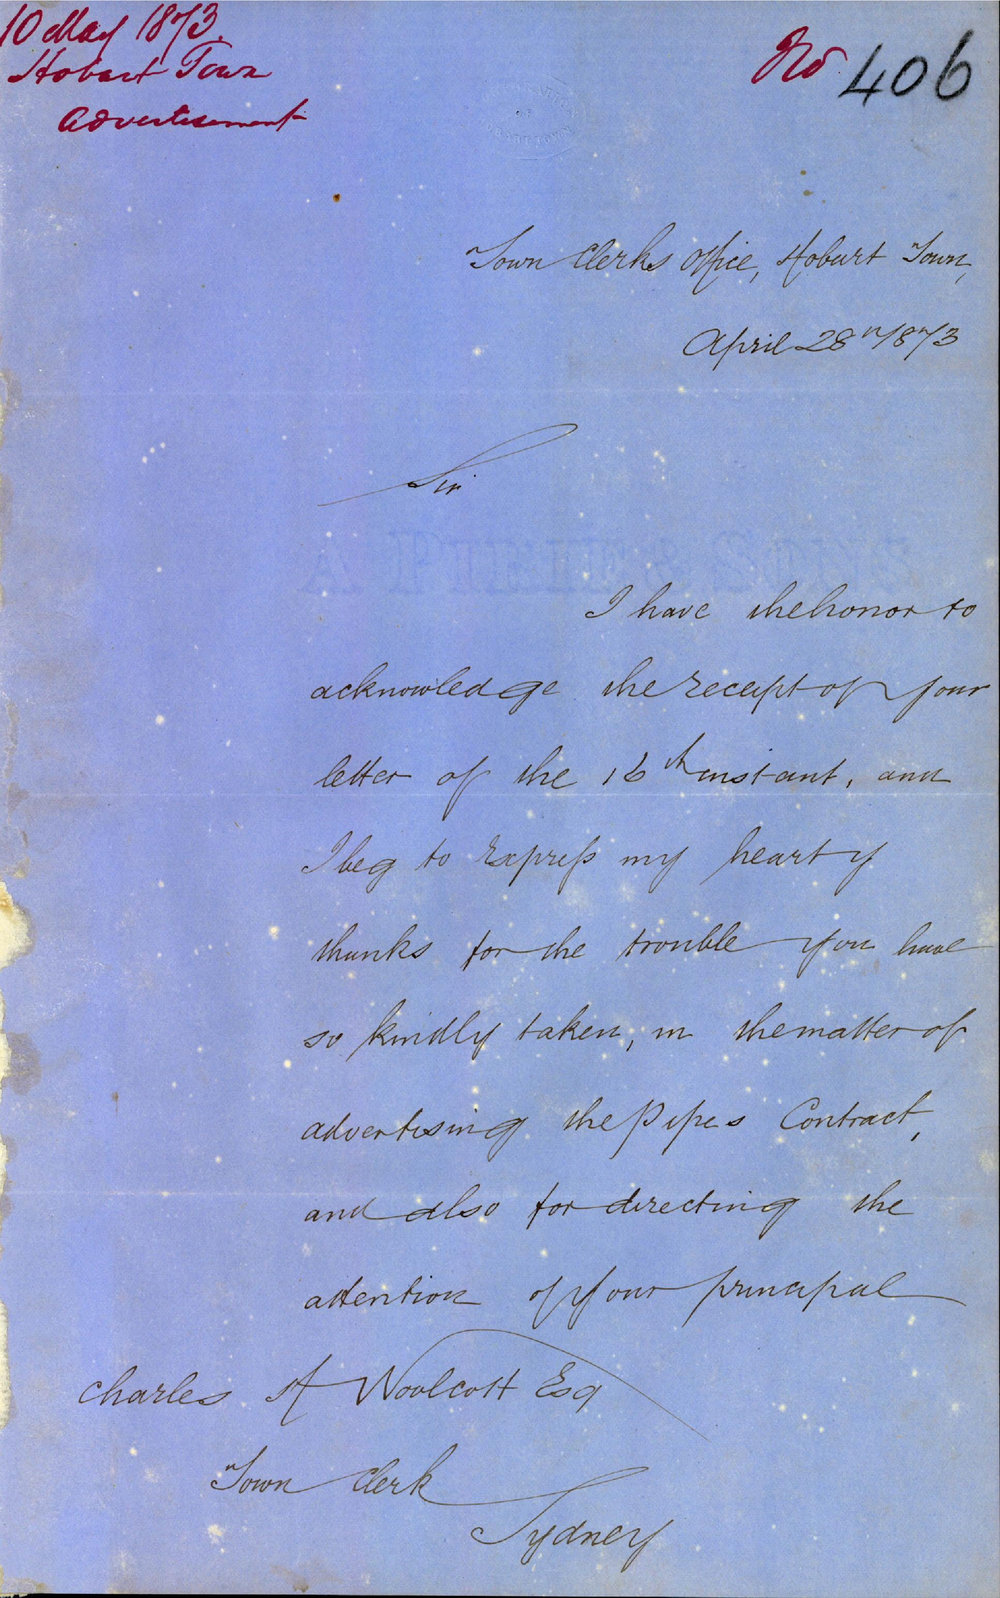 10 May 1873.
Hobart Town
Advertisement
No 406
Town Clerks Office, Hobart Town,
April 28th 1873
Sir
A PIRIE & SONS
I have the honor to
acknowledge the receipt of your
letter of the 16th instant, and
I beg to express my hearty
thanks for the trouble you have
so kindly taken, in the matter of
advertising the Pipes Contract,
and also for directing the
attention of your principal
Charles H Woolcott Esq
Town Clerk
Sydney